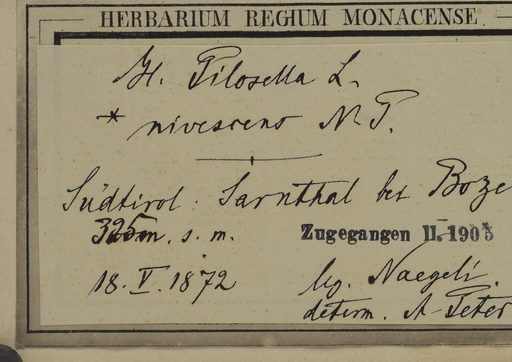 HERBARIUM REGIUM MONACENSE
H. Pilosella L.
* nivescens N. P.
Südtirol: Sarnthal bei Boze
325m. s. m.
Zugegangen II. 1905
18. V. 1872
leg. Naegeli.
determ. A. Peter